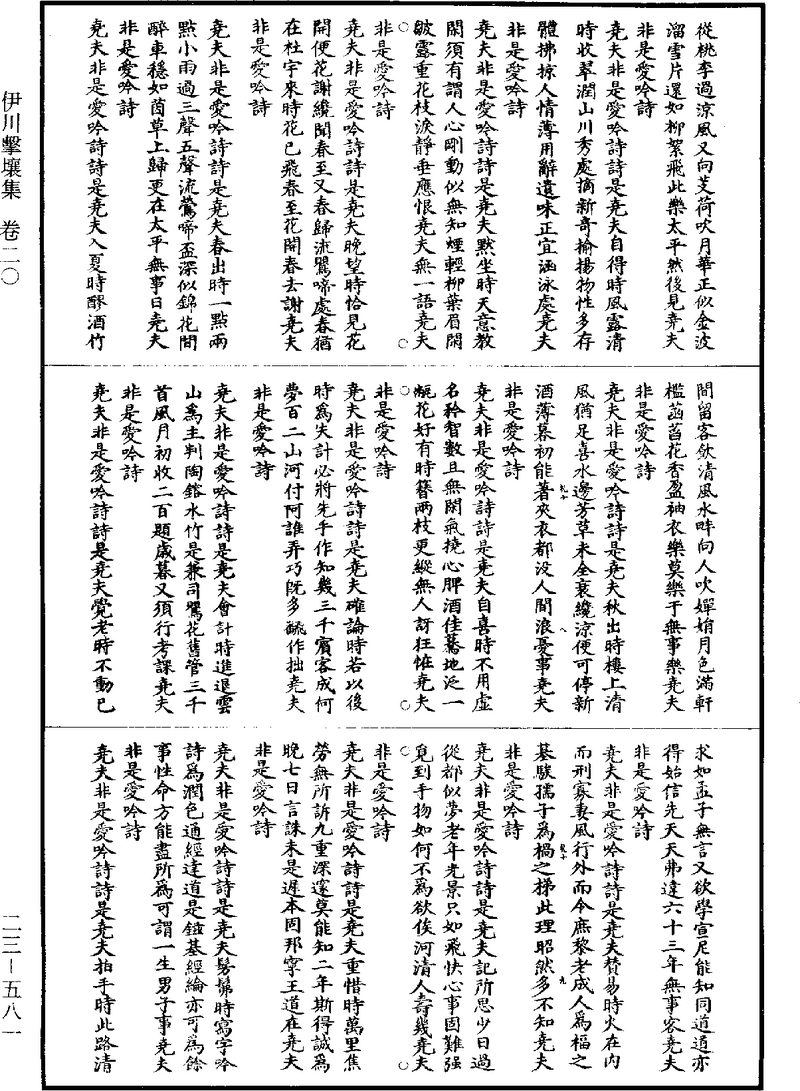 從桃李過涼風又向芰荷吹月華正似金波
溜雪片還如柳絮飛此樂太平然後見堯夫
非是愛吟詩
堯夫非是愛吟詩詩是堯夫自得時風露清
時收翠潤山川秀處摘新奇揄揚物性多存
體拂掠人情薄用辭遺味正宜涵泳處堯夫
非是愛吟詩
堯夫非是愛吟詩詩是堯夫默坐時天意教
閑須有謂人心剛動似無知煙輕柳葉眉閒
皺露重花枝淚靜垂應恨堯夫無一語堯夫
非是愛吟詩
堯夫非是愛吟詩詩是堯夫晚望時恰見花
開便花謝纔聞春至又春歸流鶯啼處春猶
在杜宇來時花已飛春至花開春去謝堯夫
非是愛吟詩
堯夫非是愛吟詩詩是堯夫春出時一點兩
點小雨過三聲五聲流鶯啼盃深似錦花間
醉車穩如茵草上歸更在太平無事日堯夫
非是愛吟詩
堯夫非是愛吟詩詩是堯夫入夏時醪酒竹
間留客飲清風水畔向人吹嬋娟月色滿軒
檻菡萏花香盈袖衣樂莫樂于無事樂堯夫
非是愛吟詩
堯夫非是愛吟詩詩是堯夫秋出時樓上清
風猶足喜水邊芳草未全衰纔涼便可停新
酒薄暮初能著夾衣都没人間浪憂事堯夫
非是愛吟詩
堯夫非是愛吟詩詩是堯夫自喜時不用虛
名矜智數且無閑氣撓心脾酒佳驀地泛一
觥花好有時簪兩枝更縱無人訝狂怪堯夫
非是愛吟詩
堯夫非是愛吟詩詩是堯夫確論時若以後
時爲失計必將先手作知幾三千賓客成何
夢百二山河付阿誰弄巧既多翻作拙堯夫
非是愛吟詩
堯夫非是愛吟詩詩是堯夫會計時進退雲
山爲主判陶鎔水竹是兼司鶯花舊管三千
首風月初收二百題歲暮又須行考課堯夫
非是愛吟詩
堯夫非是愛吟詩詩是堯夫覺老時不動已
求如孟子無言又欲學宣尼能知同道道亦
得始信先天天弗違六十三年無事客堯夫
非是愛吟詩
堯夫非是愛吟詩詩是堯夫贊易時火在内
而刑寡妻風行外而令庶黎老成人爲福之
基騃孺子爲禍之梯此理昭然多不知堯夫
非是愛吟詩
堯夫非是愛吟詩詩是堯夫記所思少日過
從都似夢老年光景只如飛快心事固難强
覓到手物如何不爲欲俟河清人壽幾堯夫
非是愛吟詩
堯夫非是愛吟詩詩是堯夫重惜時萬里焦
勞無所訴九重深邃莫能知二年斯得誠爲
晚七日言誅未是遲本固邦寧王道在堯夫
非是愛吟詩
堯夫非是愛吟詩詩是堯夫髣髴時寫字吟
詩爲潤色通經達道是鎡基經綸亦可爲餘
事性命方能盡所爲可謂一生男子事堯夫
非是愛吟詩
堯夫非是愛吟詩詩是堯夫拍手時此路清
伊川擊壤集 卷二〇
二三-五八一